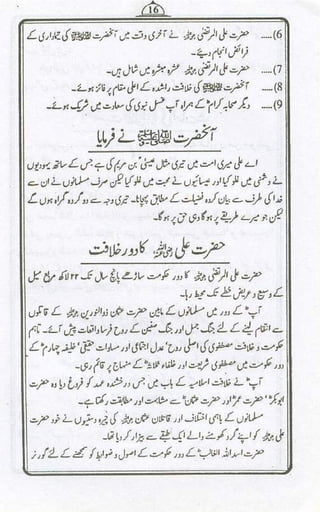 16
6)..... حضرت علی المرتضیٰؓ نے آخری وقت میں آنحضرت ﷺ کی تیمارداری کے
فرائض انجام دیئے۔
7)..... حضرت علی المرتضیٰؓ عشرہ مبشرہ میں شامل ہیں۔
8)..... آنحضرت ﷺ کی خلافت راشدہ کے اعلیٰ مقام پر فائز ہوئے۔
9)..... دیگر صحابہ کرامؓ کے ہمراہ آپ غسل نبوی کی سعادت میں شریک ہوئے۔
آنحضرت ﷺ نے فرمایا
اے علی میری امت میں تیری مثال عیسیٰ بن مریم کی ہے جس کے ساتھ یہودیوں
نے دشمنی میں غلو کیا اور عیسائیوں نے محبت میں غلو کیا لیکن صرف مسلمانوں نے ان سے
خدا کی طرف سے بیان کردہ فضیلت کے مطابق پہچانا۔ تیری وجہ سے دو گروہ گمراہ ہوں گے
لیکن جو میرے طریقے پر ہوگا وہی حق پر ہوگا۔
حضرت علی رضی اللہ عنہ کا دور خلافت
حضرت علی المرتضیٰؓ کا دور حکومت ساڑھے پانچ سال تک ۲۲ لاکھ مربع میل
کے وسیع و عریض خطے تک محیط رہا۔
آپؓ کے دور میں مسلمانوں کے مابین حضرت عثمان ذوالنورینؓ کے قاتلوں
سے انتقام لینے کے لئے جنگ جمل اور جنگ صفین کے روح فرسا واقعات پیش آئے۔ تاہم
حکومت و خلافت مصطفوی کی اصلی روح "عدل اجتماعی اور مساوات حقیقی" خلیفہ چہارمؓ کے
دور حکومت میں مصطفوی شریعت اور خلفاء ثلاثہؓ کے منہاج پر قائم رہی۔
آپؓ نے خلافت اسلامیہ کے باب میں جس درخشندہ عہد کو فروغ دیا وہ حضرت
ابوبکرؓ حضرت عمرؓ اور حضرت عثمانؓ سے مشابہت اور مطابقت رکھتا ہے۔
مسلمانوں کے باہمی اختلاف اور قاتلان عثمانؓ کی چیرہ دستیوں نے خود حضرت
علیؓ کو اپنے گرد گھومنے والے ایک طبقے سے بیزار کر دیا تھا۔
حضرت اسد اللہ الغالبؓ کے دور حکومت کے اصول و ضوابط کو سمجھنے کے لئے گورنر